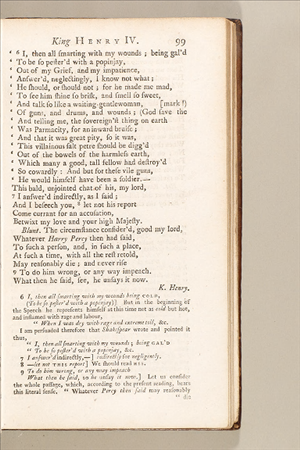 King HENRY IV. 99
" 6 I, then all smarting with my wounds ; being gal'd
" To be so pester'd with a popinjay,
" Out of my Grief, and my impatience,
" Answer'd, neglectingly, I know not what ;
" He should, or should not ; for he made me mad,
" To see him shine so brisk, and smell so sweet,
" And talk so like a waiting-gentlewoman, [mark !)
" Of guns, and drums, and wounds ; (God save the
" And telling me, the sovereign'st thing on earth
" Was Parmacity, for an inward bruise ;
" And that it was great pity, so it was,
" This villainous salt petre should be digg'd
" Out of the bowels of the harmless earth,
" Which many a good, tall fellow had destroy'd
" So cowardly : And but for these vile guns,
" He would himself have been a soldier.—
This bald, unjointed chat of his, my lord,
7 I answer'd indirectly, as I said ;
And I beseech you, 8 let not his report
Come currant for an accusation,
Betwixt my love and your high Majesty.
Blunt. The circumstance consider'd, good my lord,
Whatever Harry Percy then had said,
To such a person, and, in such a place,
At such a time, with all the rest retold,
May reasonably die ; and never rise
9 To do him wrong, or any way impeach.
What then he said, see, he unsays it now.
K. Henry.
6 I, then all smarting with my wounds being COLD,
(To be so pester'd with a popinjay)] But in the beginning of
the Speech he represents himself at this time not as cold but hot,
and inflamed with rage and labour,
" When I was dry with rage and extreme toil, &c.
I am persuaded therefore that Shakespear wrote and pointed it
thus,
" I, then all smarting with my wounds ; being GAL'D
" To be so pester'd with a popinjay, &c.
7 I answer'd indirectly,—] indirectly for negligently.
8 —let not THIS report] We should read HIS.
9 To do him wrong, or any way impeach
What then he said, so he unsay it now.] Let us consider
the whole passage, which, according to the present reading, bears
this literal sense. " Whatever Percy then said may reasonably
" die